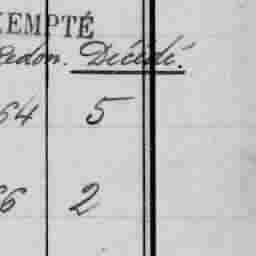 XEMPTÉ
adon. Décédé.
64 5
66 2